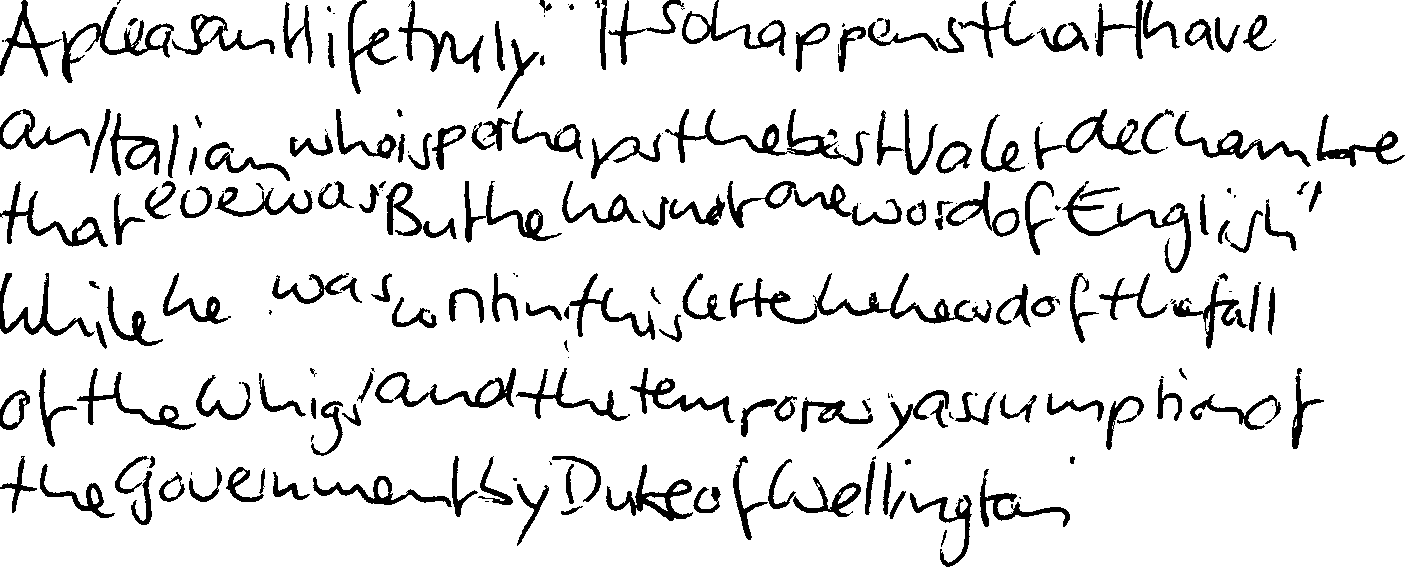 A pleasant life truly." "It so happens that I have
an Italian who is perhaps the best Valet de Chambre
that ever was But he has not one word of English"
While he was writing this letter he heard of the fall
of the Whigs' and the temporary assumption of
the Government by Duke of Wellington